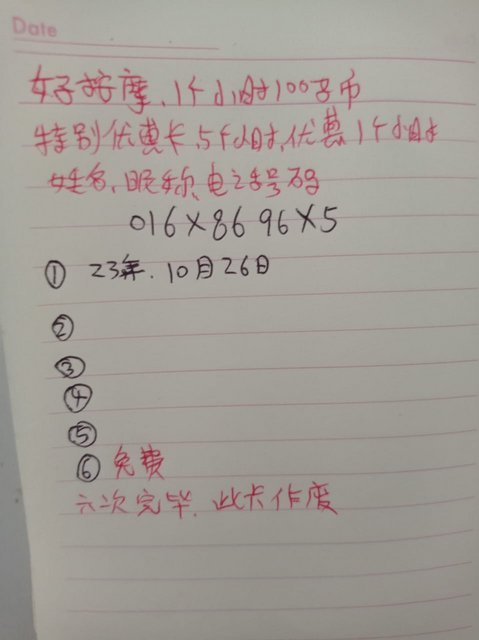 Date
好按摩、1个小时100马币
特别优惠卡、5个小时、优惠1个小时
姓名、昵称、电话号码
016X8696X5
① 23年、10月26日
②
③
④
⑤
⑥ 免费
六次完毕、此卡作废